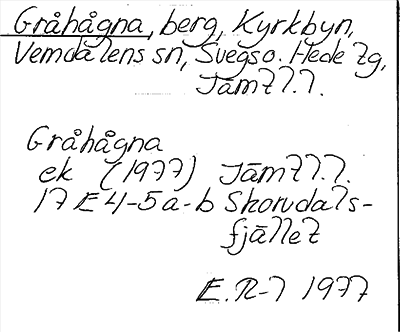 Gråhågna, berg, Kyrkbyn,
Vemdalens sn, Svegso. Hede tg,
Jämtl.l.
Gråhågna
ek (1977) Jämtl.l.
17 E 4-5 a-b Skorvdals-
fjället
E.R-l 1977